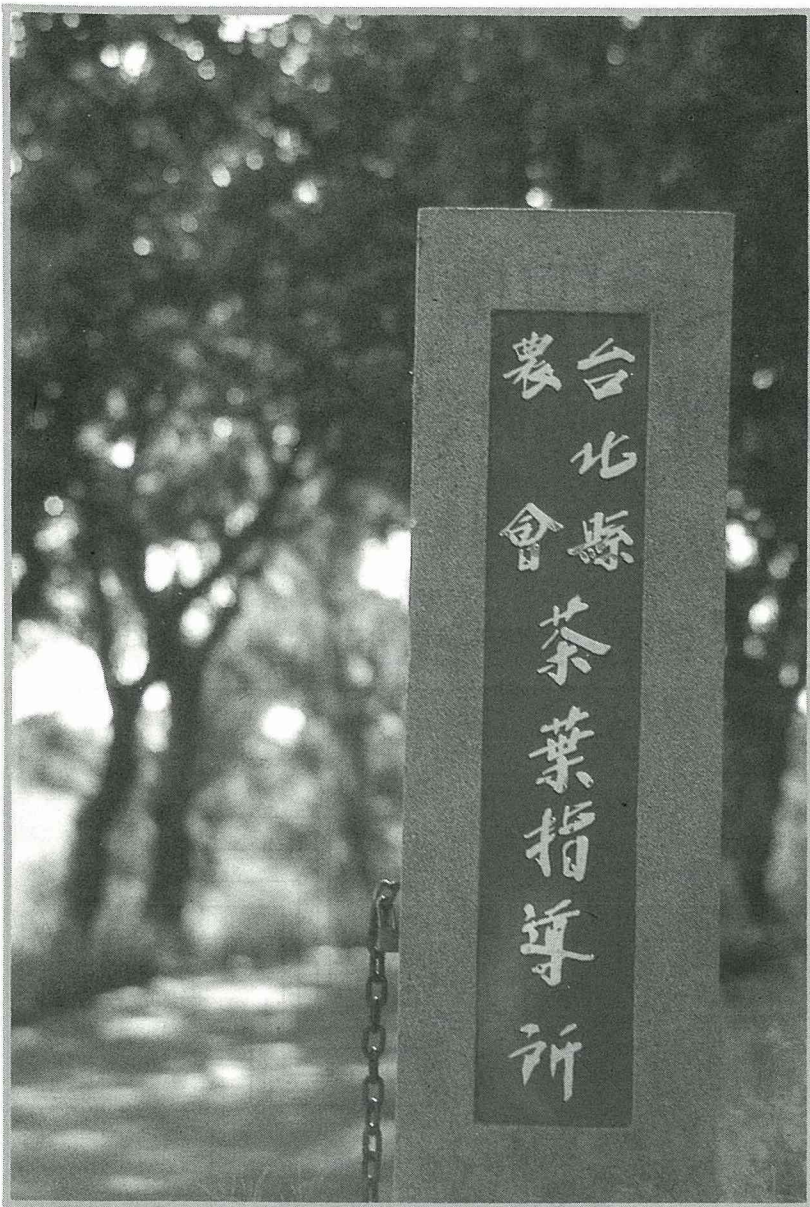 台北縣
農會
茶葉指導所